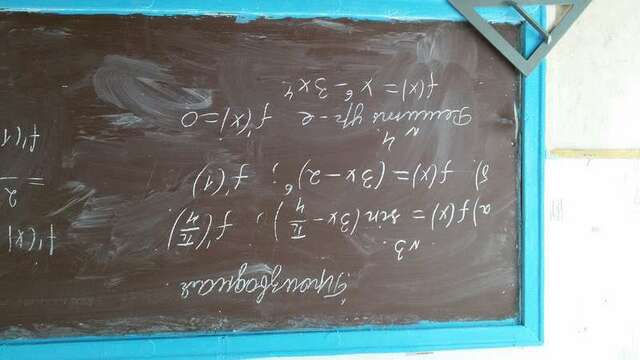 Производная
№3.
а) f(x) = sin(3x - π/4); f'(π/4).
б). f(x) = (3x - 2)⁶; f'(1)
№4.
Решить ур-е f'(x) = 0
f(x) = x⁶ - 3x⁴.
f'(x)
= 2
f'(1